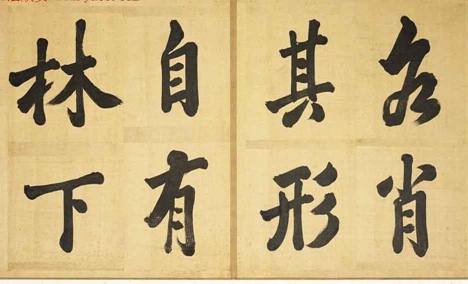 各肖
其形
自有
林下